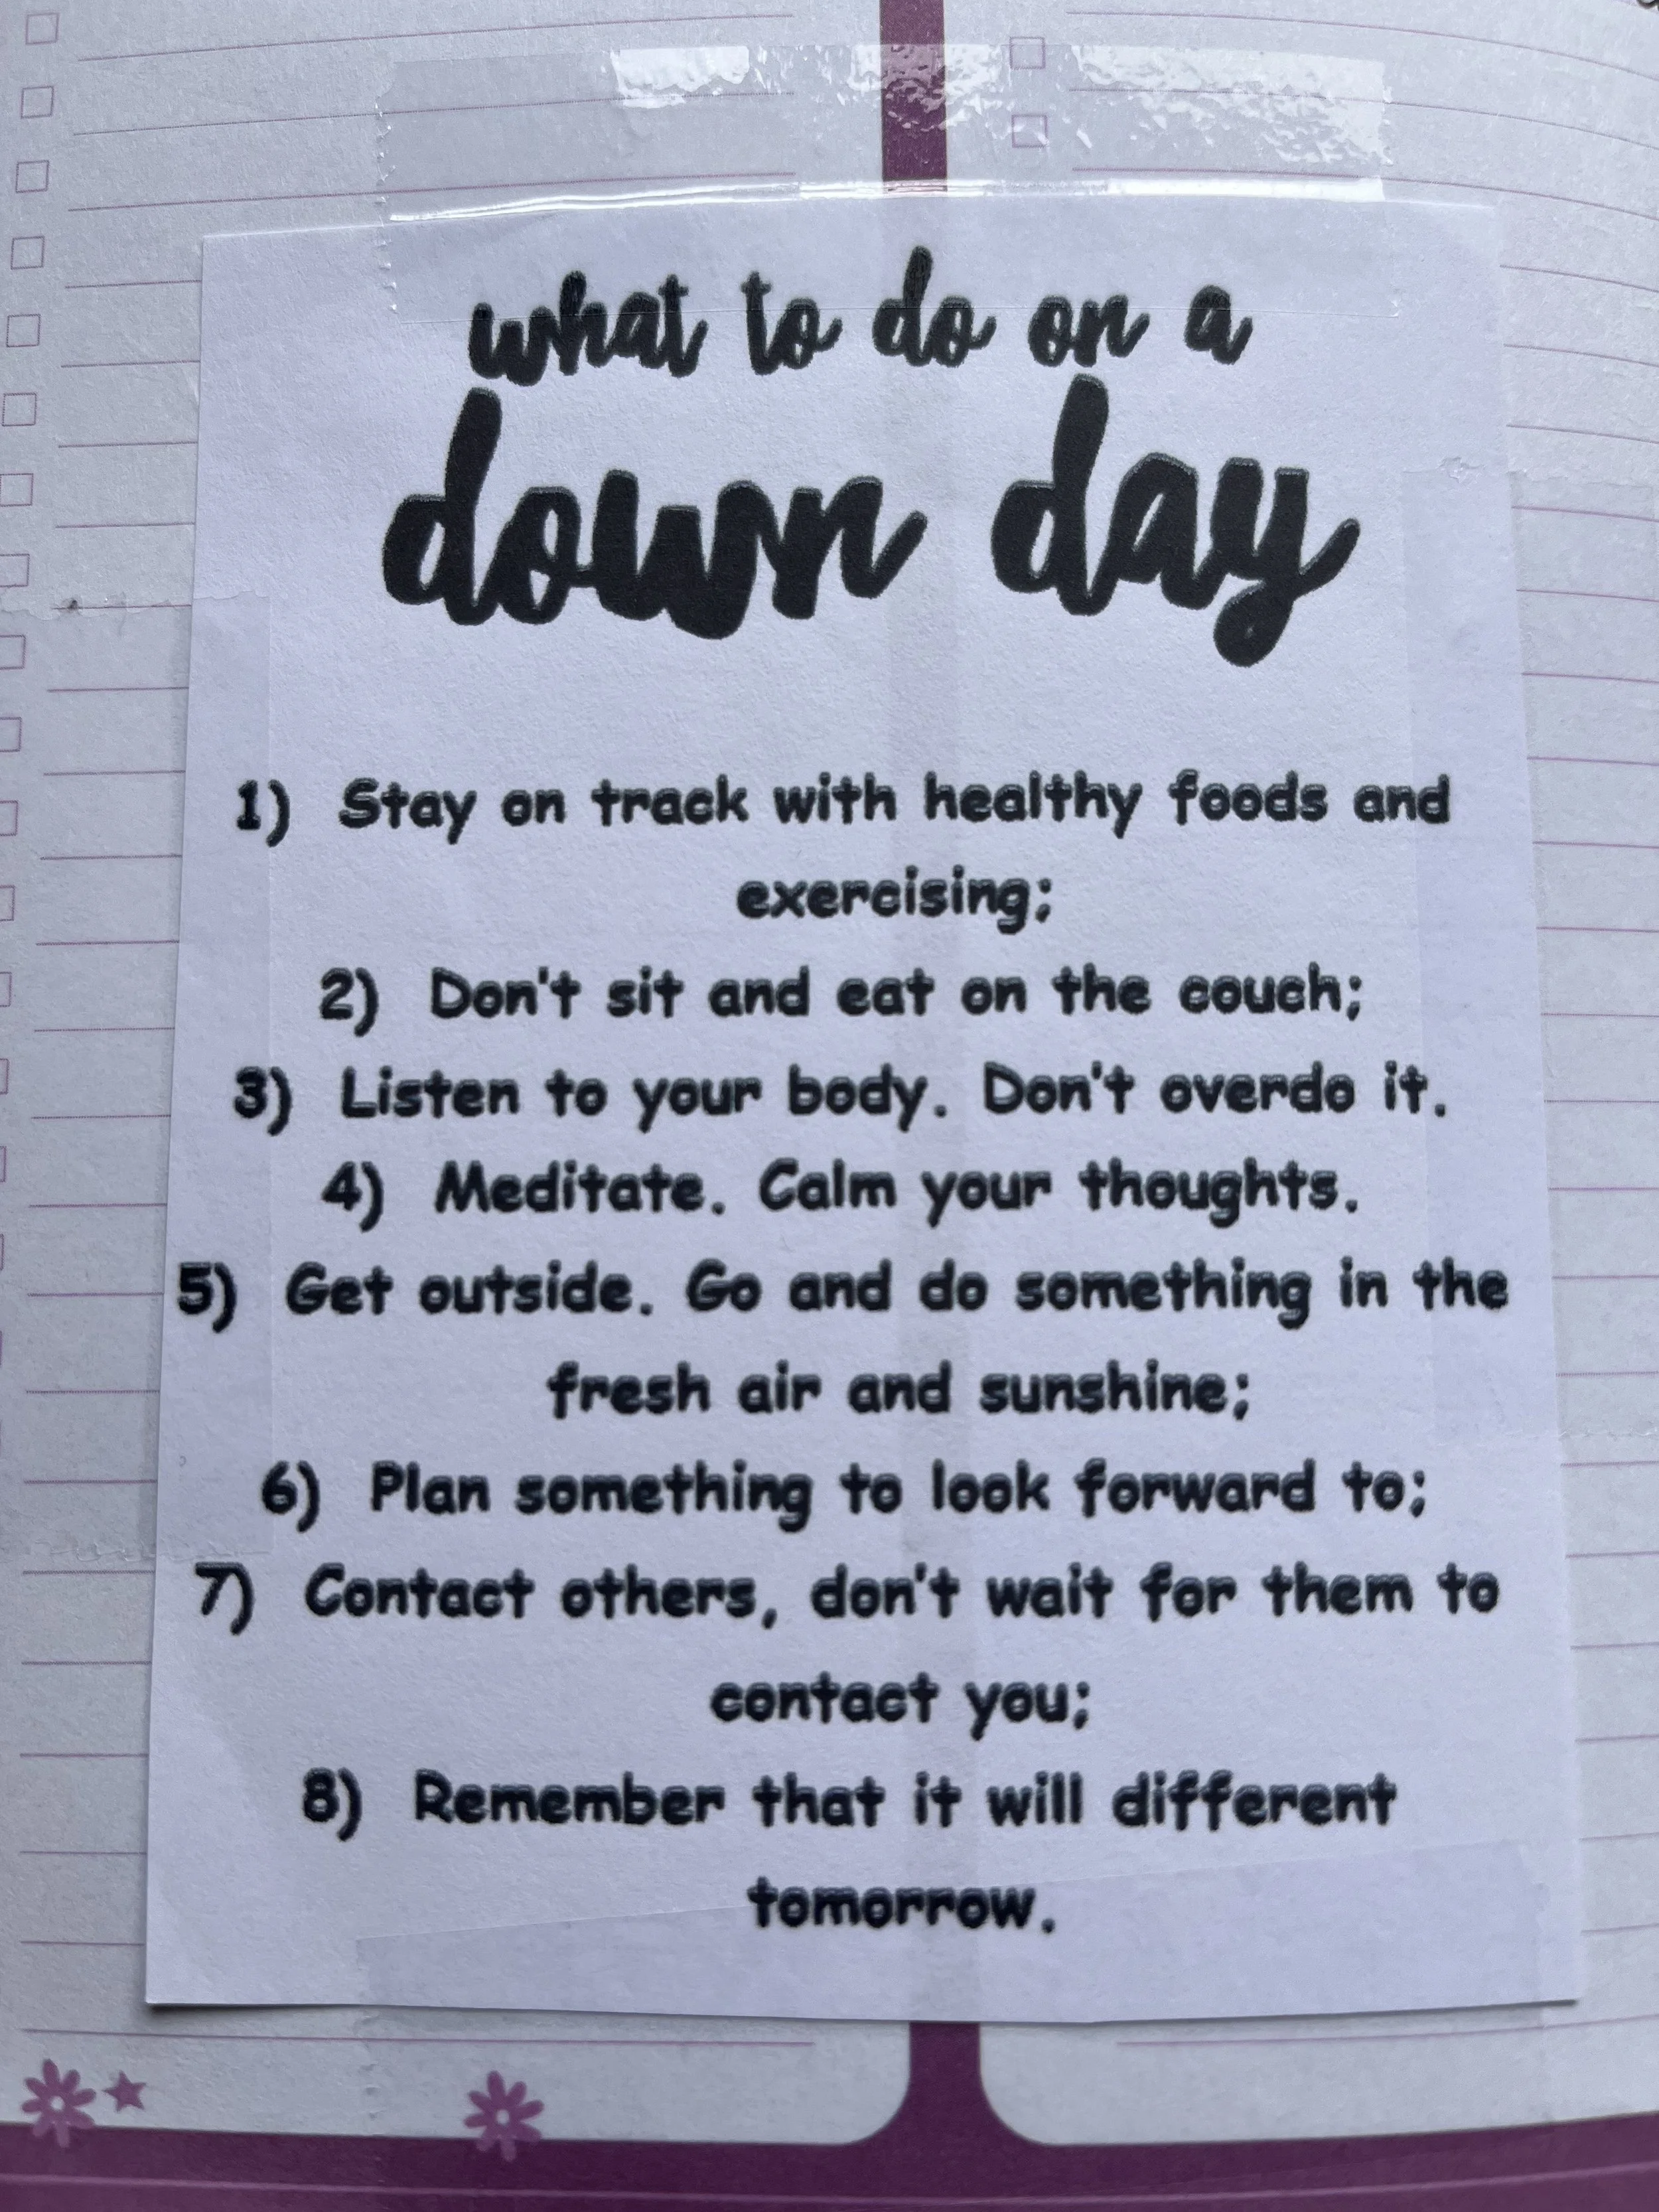 what to do on a
down day
1) Stay on track with healthy foods and
exercising;
2) Don't sit and eat on the couch;
3) Listen to your body. Don't overdo it.
4) Meditate. Calm your thoughts.
5) Get outside. Go and do something in the
fresh air and sunshine;
6) Plan something to look forward to;
7) Contact others, don't wait for them to
contact you;
8) Remember that it will different
tomorrow.